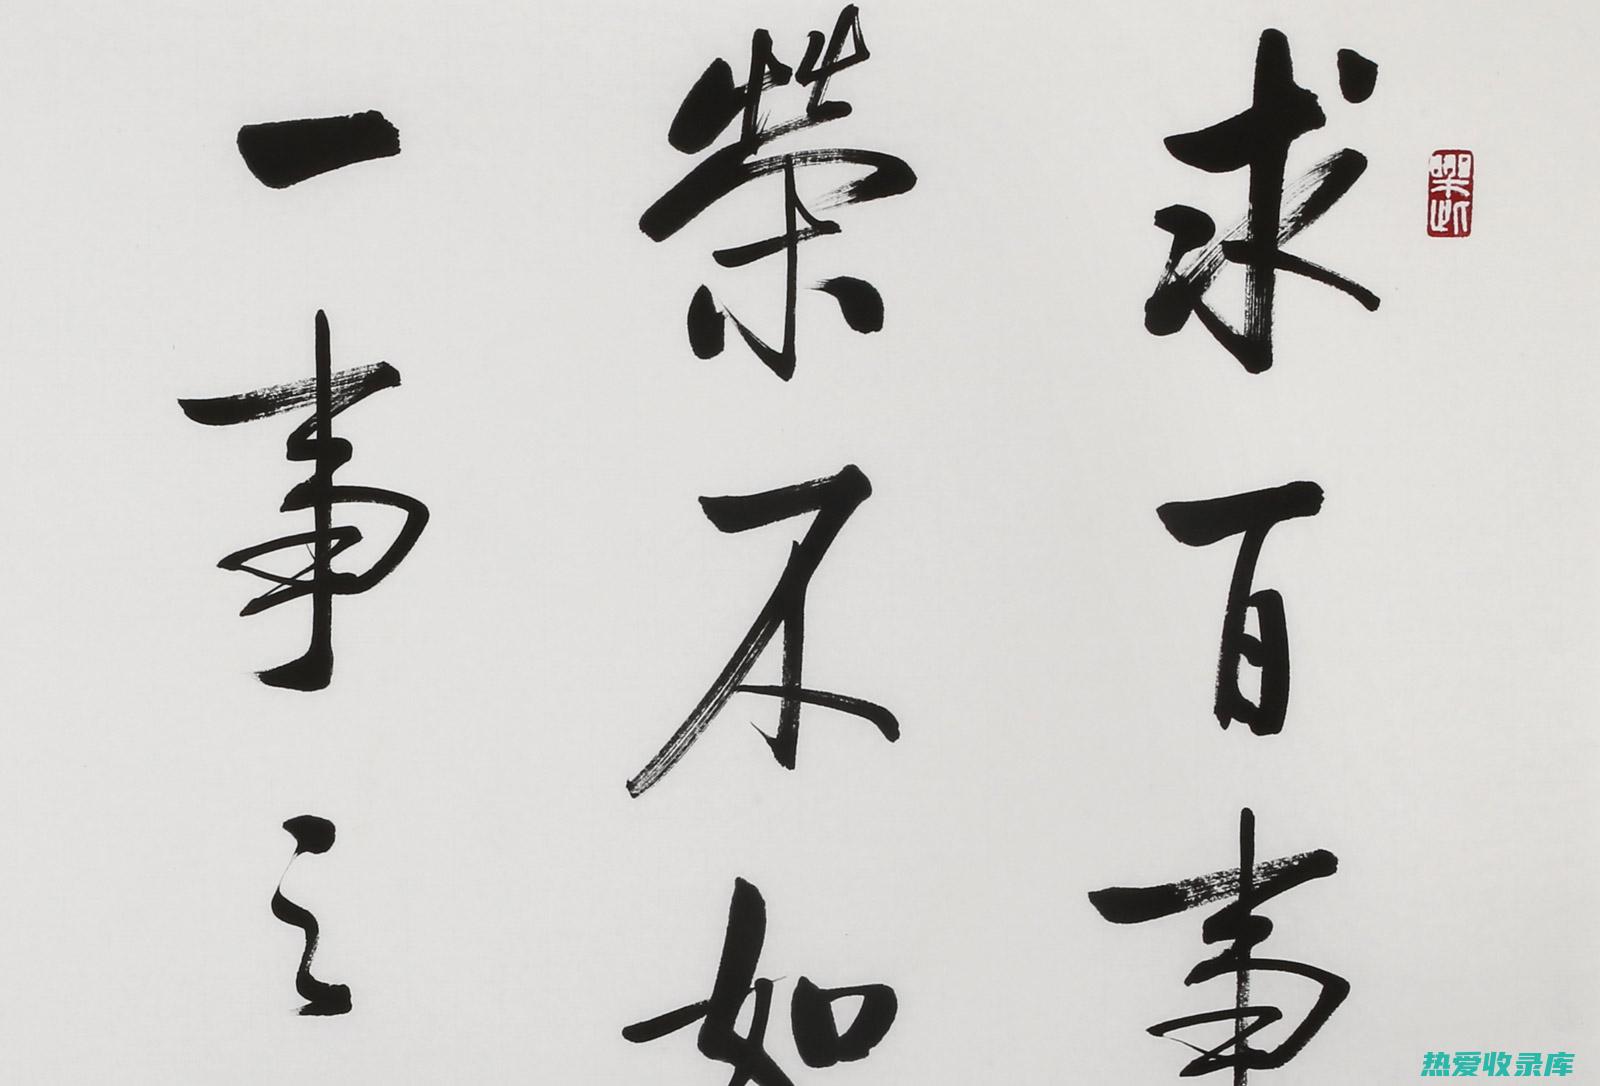 求百事
荣不如
一事之
热爱收录库